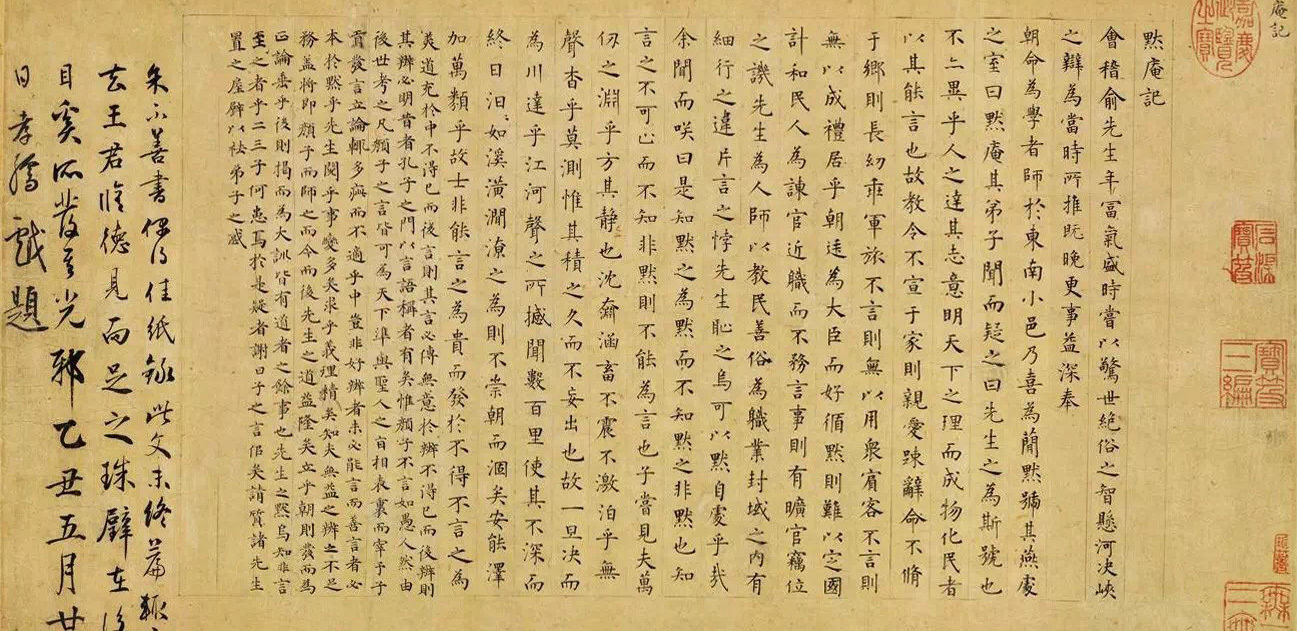 庵記
默庵記
會稽俞先生年富氣盛時嘗以驚世絕俗之智懸河决峽
之辯為當時所推既晚更事益深奉
朝命為學者師於東南小邑乃喜為蕳默號其燕處
之室曰默庵其弟子聞而疑之曰先生之為斯號也
不亡異乎人之達其志意明天下之理而成物化民者
以其能言也故教令不宣于家則親愛踈辭命不脩
于鄉則長幼乖軍旅不言則無以用衆賔客不言則
無以成禮居乎朝廷為大臣而好循默則難以定國
計和民人為諫官近職而不務言事則有曠官竊位
之譏先生為人師以教民善俗為職業封域之内有
細行之違片言之悖先生恥之烏可以默自處乎哉
余聞而咲曰是知默之為默而不知默之非默也知
言之不可亡而不知非默則不能為言也子嘗見夫萬
仭之淵乎方其静也沈㵽涵畜不震不激泊乎無
聲杳乎莫測惟其積之久而不妄出也故一旦决而
為川達乎江河聲之所撼聞數百里使其不深而
終日汩汩如溪潢澗潦之為則不崇朝而涸矣安能澤
加萬𩔖乎故士非能言之為貴而發於不得不言之為
美道充於中不得已而後言則其言必傳無意於辨不得已而後辨則
其辨必明昔者孔子之門以言語稱者有矣惟顔子不言如愚人然由
後世考之凡顔子之言皆可為天下準與聖人之旨相表裏而宰予子
貢發言立論輒多疵而不適乎中豈非好辨者未必能言而善言者必
本於默乎先生閱乎事變多矣求乎義理精矣知夫無益之辨之不足
務盖将即顔子而師之而今而後先生之道益隆矣立乎朝則發而為
正論垂乎後則揭而為大訓皆有道者之餘事也先生之默烏知非言
至之者乎二三子何惑焉於是疑者謝曰子之言信矣請質諸先生
置之屋壁以祛弟子之惑
朱不善書偶得佳紙錄此文未終篇輒
去王君
德見而足之珠璧在
目奚所發其光邪乙丑五月廿
日孝孺戲題